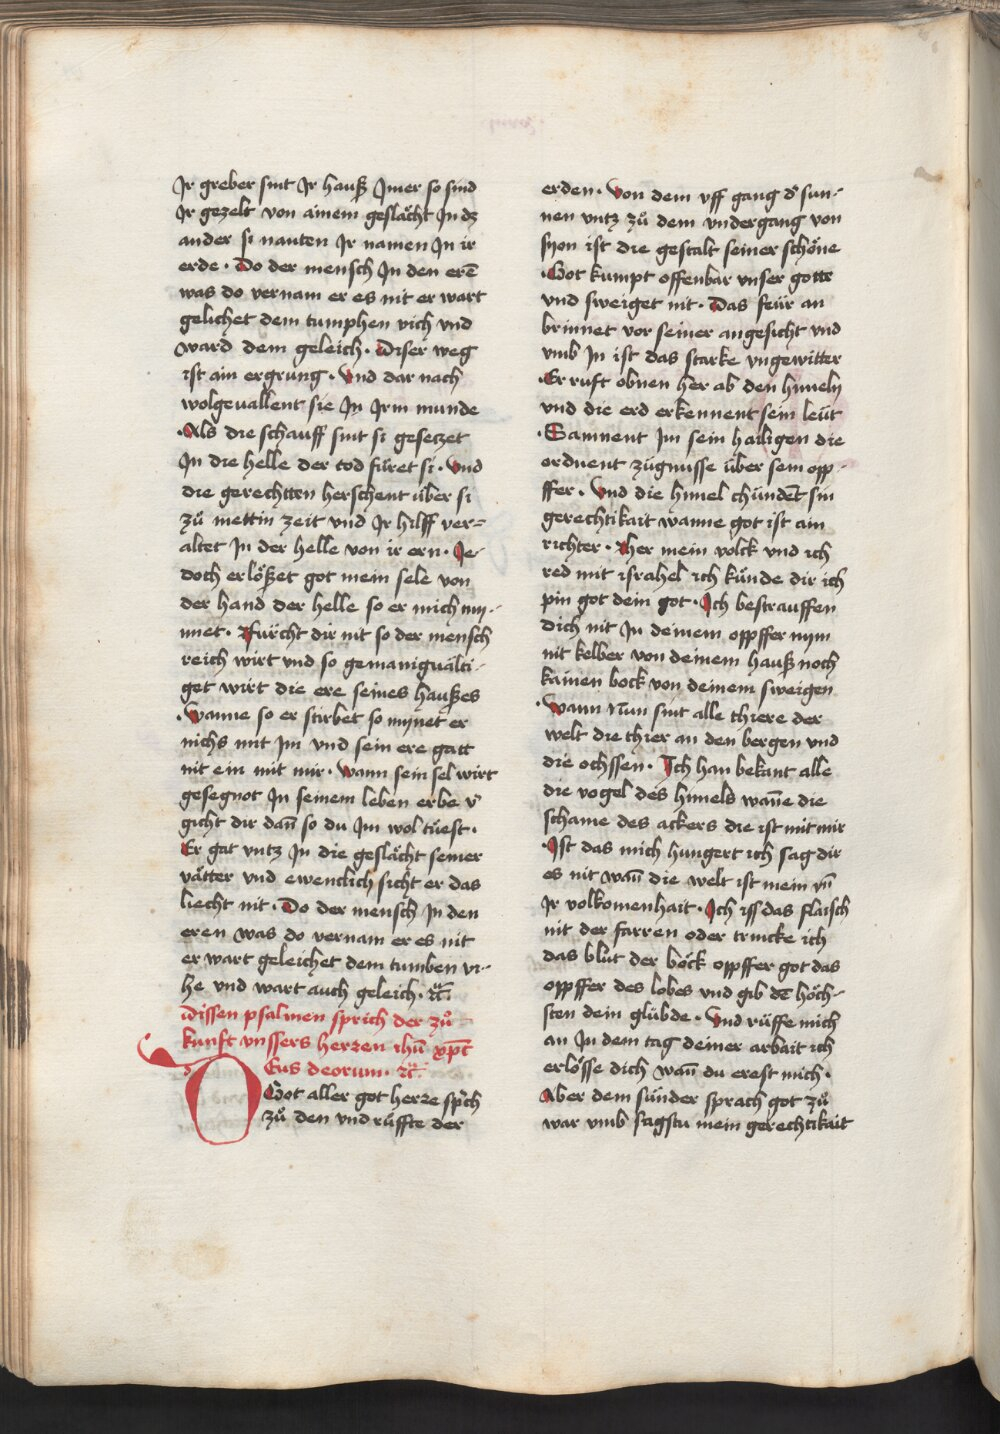 Jr greber sint Jr hauß Jmer so sind
Jr gezelt von ainem geslächt Jn dz
ander si nanten Jr namen Jn ir
erde · Do der mensch Jn den erē
was do vernam er es nit er wart
gelichet dem tumphen vich vnd
ward dem geleich · Diser weg
ist ain ergrung · Vnd dar nach
wolgeuallent sie Jn Jrm munde
· Als die schauff sint si geseczet
Jn die helle der tod füret si · Vnd
die gerechtten herschent über si
zů mettin zeit vnd Jr hilff ver=
altet Jn der helle von ir ern · Je-
doch erlößet got mein sele von
der hand der helle so er mich ny-
met · Fürcht dir nit so der mensch
reich wirt vnd so gemaniguälti-
get wirt die ere seines haußes
· Wanne so er stirbet so nymet er
nichs mit Jm vnd sein ere gatt
nit ein mit mir · Wann sein sel wirt
gesegnot Jn seinem leben er be v̄
gicht dir dañ so du Jm wol tüest ·
Er gat vntz Jn die geslächt seiner
vätter vnd ewenclich sicht er das
liecht nit · Do der mensch Jn den
eren was do vernam er es nit
er wart geleichet dem tumben vi-
he vnd wart auch geleich · ꝛc̄
dissen psalmen sprich der zů
kunft vnssers herzen ihū xp̄i
d Eus deorum · ꝛc̄
Got aller got herre sp̄ch
zů den vnd rüffte der
erden · Von dem vff gang d' sun-
nen vntz zů dem vndergang von
syon ist die gestalt seiner schöne
· Got kumpt offenbar vnser gotte
vnd sweiget nit · Das feür an
brinnet vor seiner angesicht vnd
vmb Jn ist das starke vngewitter
· Er ruft obnen her ab den himeln
vnd die erd erkennent sein leüt
· Samnent Jm sein hailigen die
ordnent zügnusse über sein opp-
ffer · Vnd die himel chündēt sin
gerechtikait wanne got ist ain
richter · Her mein volck vnd ich
red mit israhel ich künde dir ich
pin got dein got · Ich bestrauffen
dich nit Jn deinem oppffer nym
nit kelber von deinem hauß noch
kainen bock von deinem sweigen
· Wann nun sint alle thiere der
welt die thier an den bergen vnd
die ochssen · Ich han bekant alle
die vogel des himels wañe die
schame des ackers die ist mit mir
· Ist das mich hungert ich sag dir
es nit wañ die welt ist mein vñ
Jr volkomenhait · Ich iss das flaisch
nit der farren oder trincke ich
das blut der böck oppffer got das
oppffer des lobes vnd gib dē höch-
sten dein glübde · Vnd rüffe mich
an Jn dem tag deiner arbait ich
erlösse dich wañ du erest mich ·
Aber dem sünder sprach got zů
war vmb sagstu mein gerechtikait